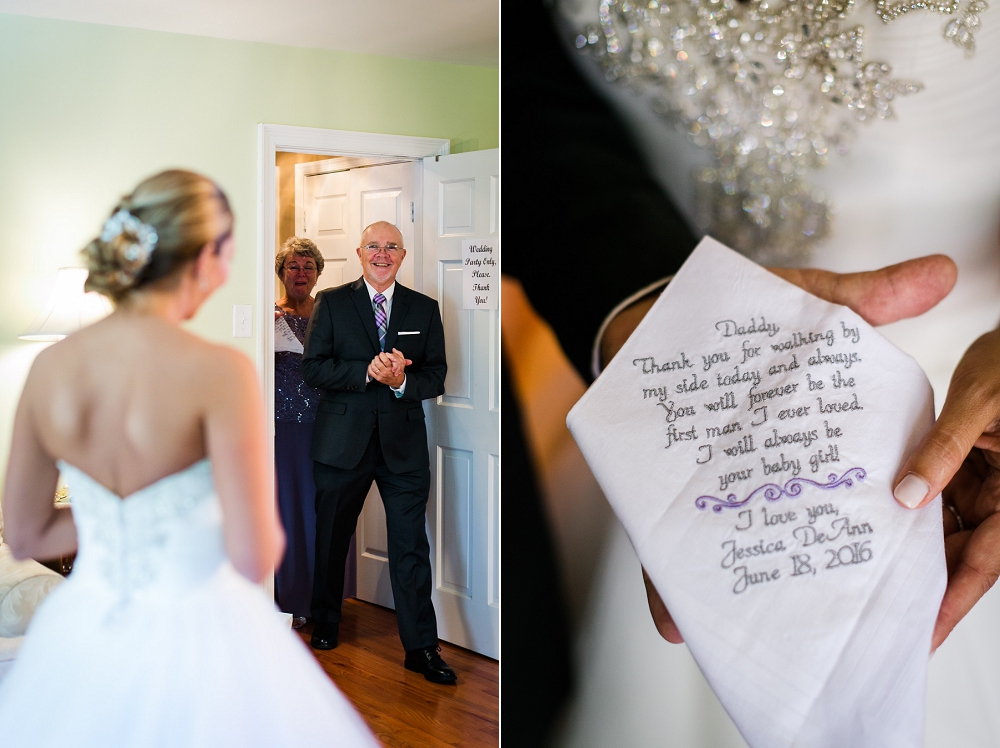 Wedding
Party Only,
Please.
Thank
You!
Daddy,
Thank you for walking by
my side today and always.
You will forever be the
first man I ever loved.
I will always be
your baby girl!
I love you,
Jessica DeAnn
June 18, 2016